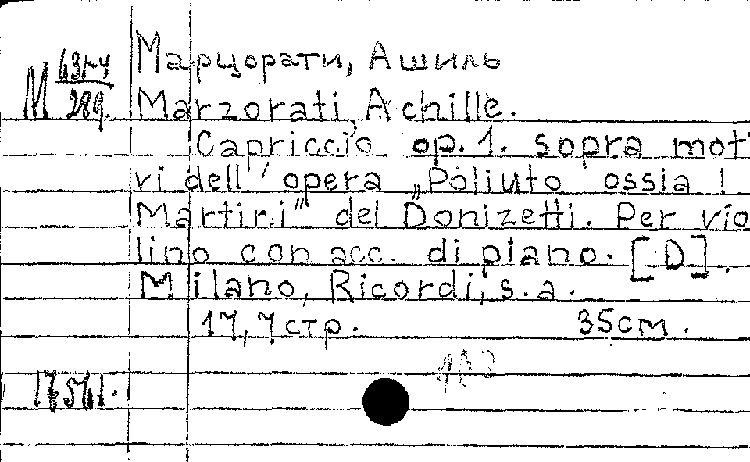 Марцорати, Ашиль
М 63г4/289.
Marzorati, Achille.
Capriccio op. 1. sopra mot
vi dell' opera „Poliuto ossia I
Martiri" del Donizetti. Per vio
lino con acc. di piano. [D].
Milano, Ricordi, s. a.
17, 7 стр. 35 см.